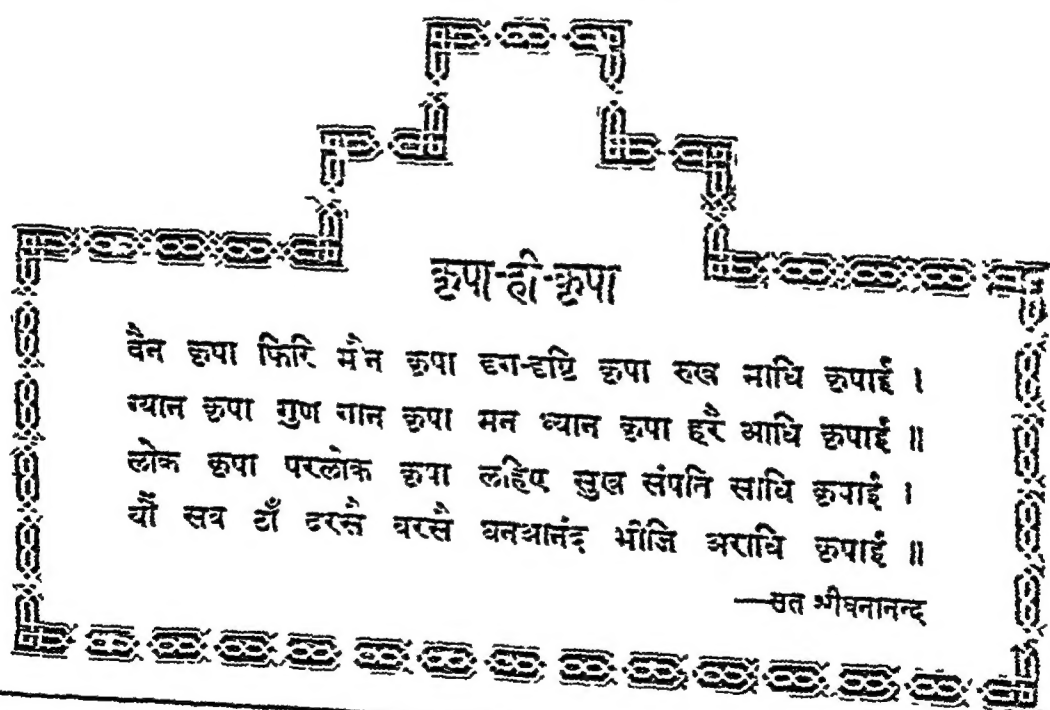 कृपा-ही-कृपा
वैन कृपा फिरि मैन कृपा दृग-दृष्टि कृपा रुख माधि कृपाईं ।
ग्यान कृपा गुण गान कृपा मन ध्यान कृपा हरै आधि कृपाईं ॥
लोक कृपा परलोक कृपा लहिए सुख संपति साधि कृपाईं ।
यौं सव ठाँ दरसै वरसै घनआनंद भीजि अराधि कृपाईं ॥
—सत श्रीघनानन्द